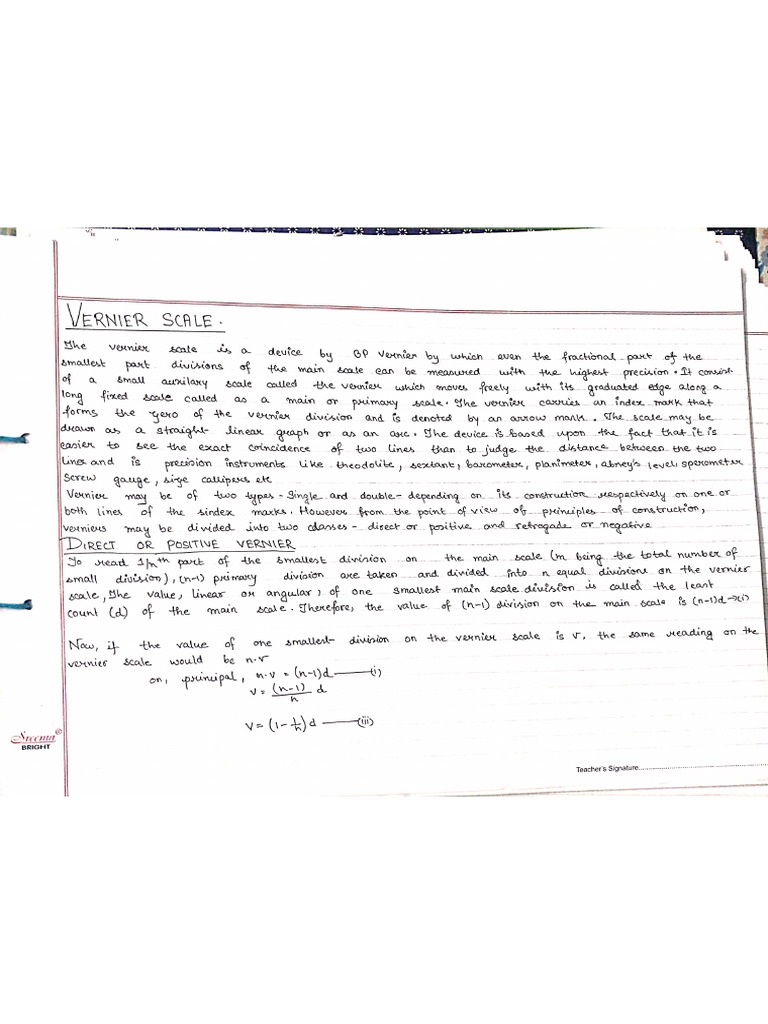 VERNIER SCALE.
The vernier scale is a device by BP Vernier by which even the fractional part of the
smallest part divisions of the main scale can be measured with the highest precision. It consist
of a small auxilary scale called the vernier which moves freely with its graduated edge along a
long fixed scale called as a main or primary scale. The vernier carries an index mark that
forms the zero of the vernier division and is denoted by an arrow mark. The scale may be
drawn as a straight linear graph or as an arc. The device is based upon the fact that it is
easier to see the exact coincidence of two lines than to judge the distance between the two
lines and is precision instruments like theodolite, sextant, barometer, planimeter, abney's level, sperometer
Screw gauge, size callipers etc
Vernier may be of two types - Single and double - depending on its construction respectively on one or
both lines of the sindex marks. However from the point of view of principles of construction,
verniers may be divided into two classes - direct or positive and retrogade or negative
DIRECT OR POSITIVE VERNIER
To read 1/nth part of the smallest division on the main scale (m being the total number of
small division), (n-1) primary division are taken and divided into n equal divisions on the vernier
scale, The value, linear or angular, of one smallest main scale division is called the least
count (d) of the main scale. Therefore, the value of (n-1) division on the main scale is (n-1)d →(i)
Now, if the value of one smallest division on the vernier scale is v, the same reading on the
vernier scale would be n.v
on, principal, n.v = (n-1)d —(i)
v = (n-1)/n d
v = (1 - 1/n) d —(iii)
Sreema®
BRIGHT
Teacher's Signature